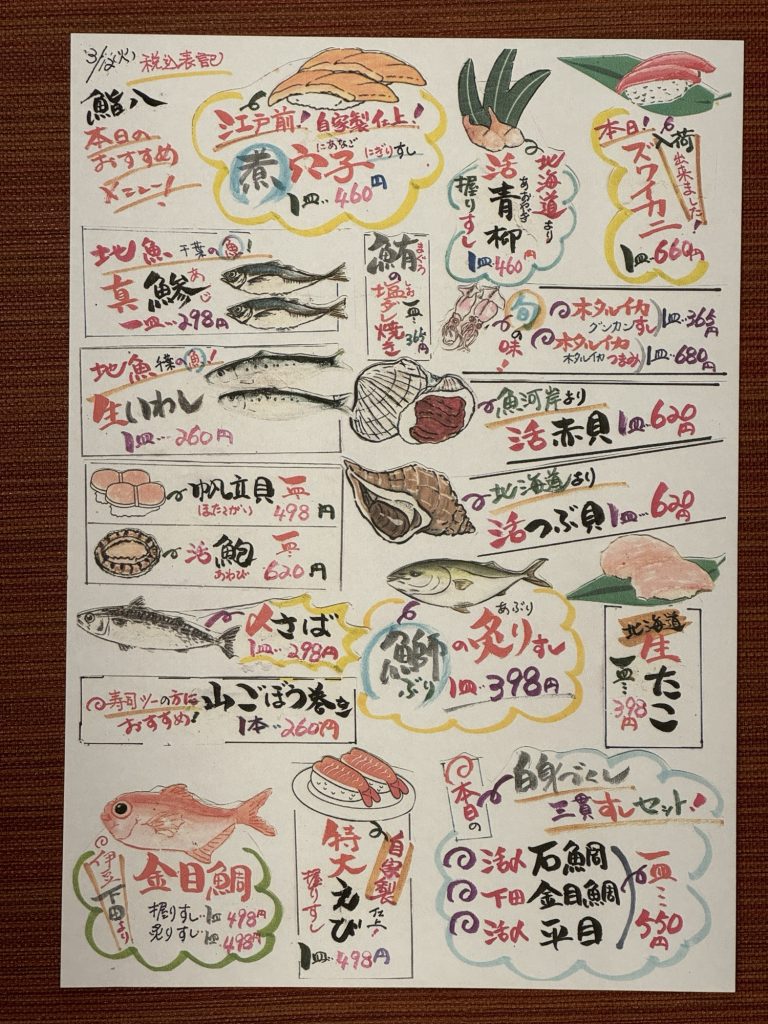 税込表記
鮨八
本日の
おすすめ
メニュー!
江戸前!自家製仕上!
にあなご
煮穴子にぎりすし
1皿‥460円
北海道より
活青柳
あおやぎ
握りすし
1皿‥460円
本日!入荷
出来ました!
ズワイカニ
1皿‥660円
地魚千葉の魚!
あじ
真鯵
一皿‥298円
まぐろ
鮪の塩ダレ焼き
しお
一皿‥365円
旬の味!
ホタルイカ
グンカンすし
1皿‥365円
ホタルイカ
ホタルイカつまみ
1皿‥680円
地魚千葉の魚!
生いわし
1皿‥260円
魚河岸より
活赤貝1皿‥620円
帆立貝
ほたてがい
一皿‥498円
活鮑
あわび
一皿‥620円
北海道より
活つぶ貝1皿‥620円
〆さば
1皿‥298円
あぶり
鰤の炙りすし
ぶり
1皿‥398円
北海道
生たこ
一皿‥398円
寿司ツーの方に
おすすめ!
山ごぼう巻き
1本‥260円
伊豆下田より
金目鯛
握りすし1皿498円
炙りすし1皿498円
自家製仕上!
特大えび
握りすし
1皿‥498円
本日の
白身づくし
三貫すしセット!
活〆石鯛
下田金目鯛
活〆平目
一皿‥550円